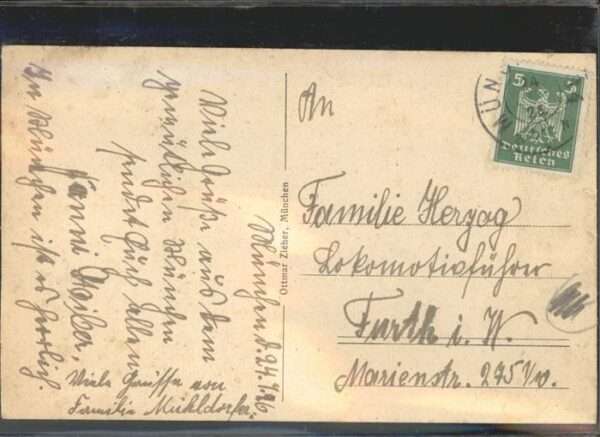 München d. 24.7.26
Viele Grüße aus dem
gemütlichen München
sendet Euch allen
Nanni
In München ist es herrlich.
Viele Grüsse von
Familie Mühldorfer.
Ottmar Zieher, München
An
Familie Herzog
Lokomotivführer
Furth i. W.
Marienstr. 275 1/0.
MÜN
5 5
Deutsches
Reich